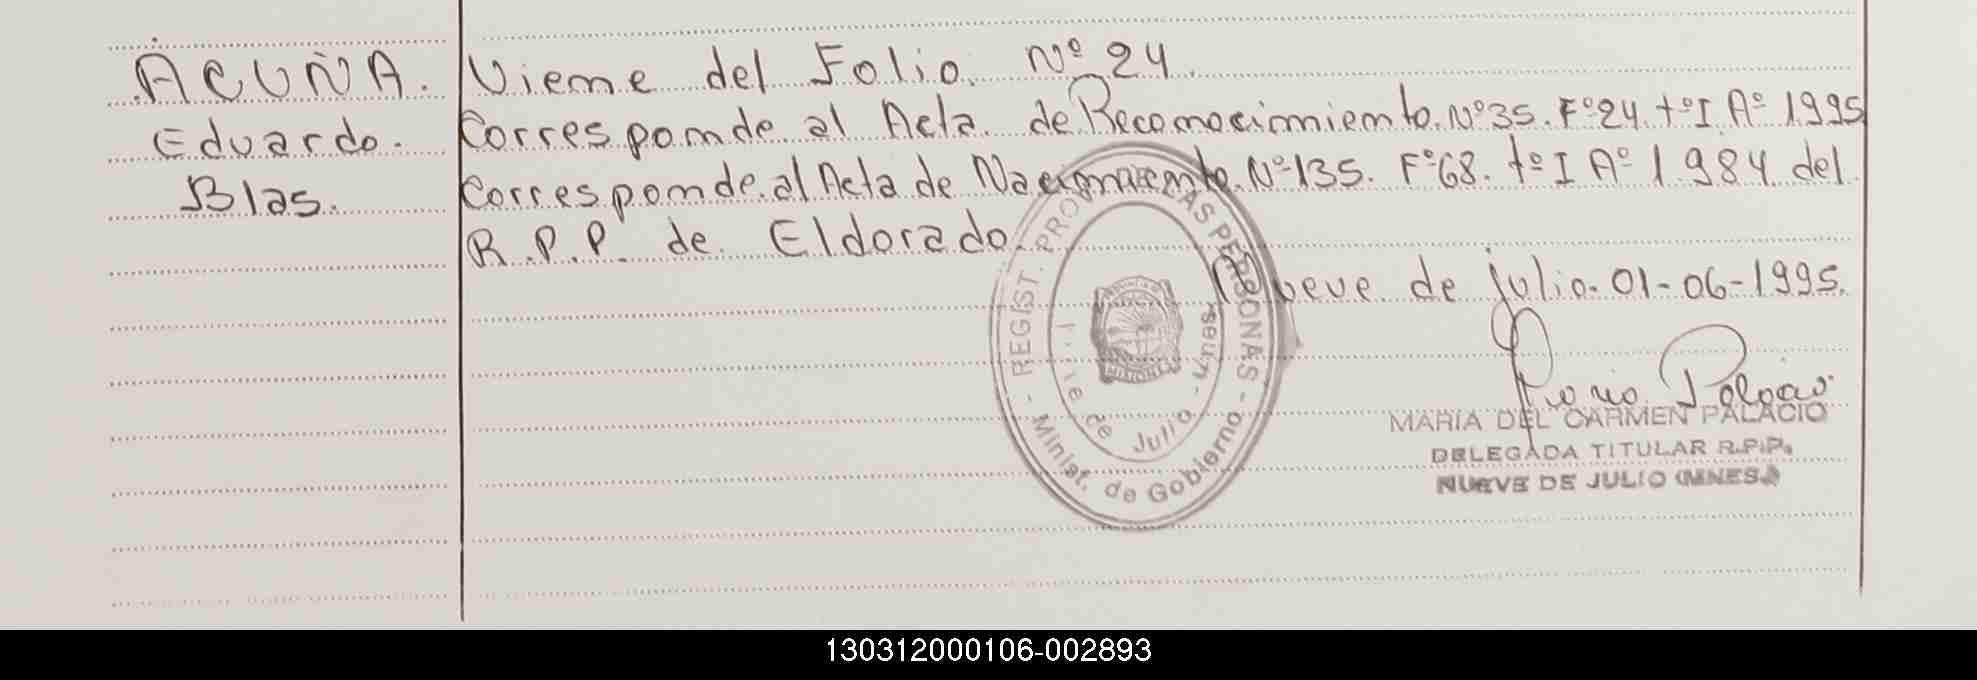 ACUÑA.
Eduardo.
Blas.
Viene del Folio. Nº 24.
Corresponde al Acta de Reconocimiento. Nº 35. Fº 24. tº I Aº 1995
Corresponde al Acta de Nacimiento. Nº 135. Fº 68. tº I Aº 1984 del
R.P.P. de Eldorado.
Nueve de julio. 01-06-1995.
REGIST. PROV. LAS PERSONAS - Minist. de Gobierno -
de Julio - Mnes.
MARIA DEL CARMEN PALACIO
DELEGADA TITULAR R.P.P.
NUEVE DE JULIO (MNES.)
130312000106-002893